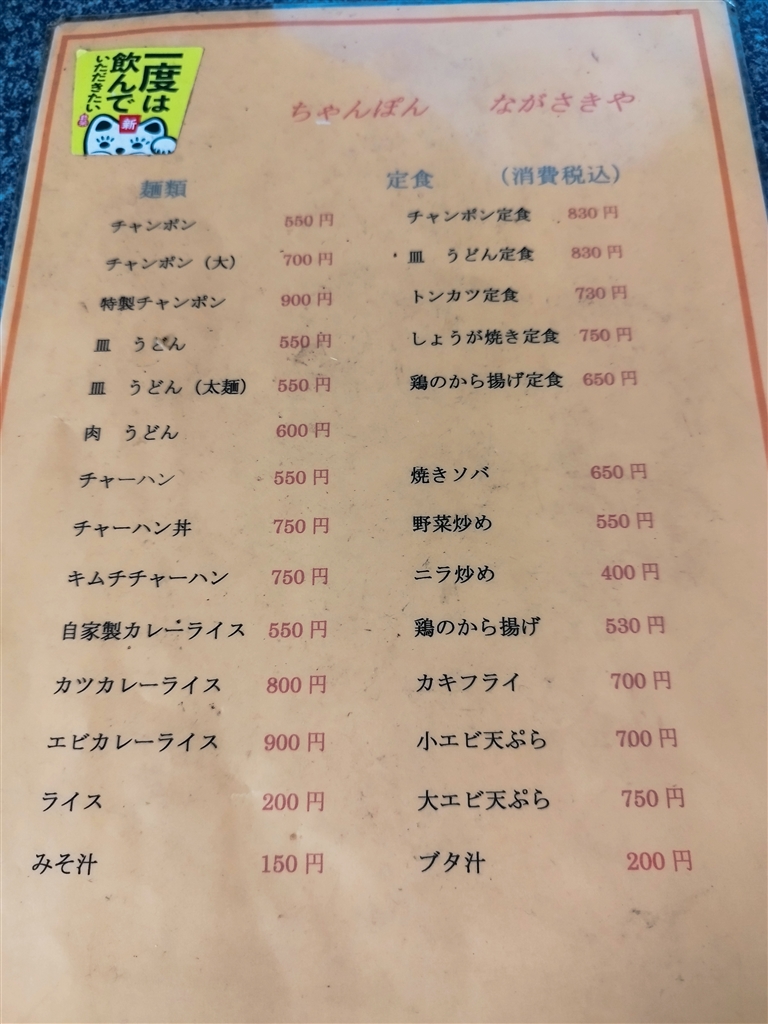 一度は
飲んで
いただきたい
新
ちゃんぽん ながさきや
麺類
チャンポン 550円
チャンポン（大） 700円
特製チャンポン 900円
皿 うどん 550円
皿 うどん（太麺） 550円
肉 うどん 600円
チャーハン 550円
チャーハン丼 750円
キムチチャーハン 750円
自家製カレーライス 550円
カツカレーライス 800円
エビカレーライス 900円
ライス 200円
みそ汁 150円
定食 （消費税込）
チャンポン定食 830円
皿 うどん定食 830円
トンカツ定食 730円
しょうが焼き定食 750円
鶏のから揚げ定食 650円
焼きソバ 650円
野菜炒め 550円
ニラ炒め 400円
鶏のから揚げ 530円
カキフライ 700円
小エビ天ぷら 700円
大エビ天ぷら 750円
ブタ汁 200円